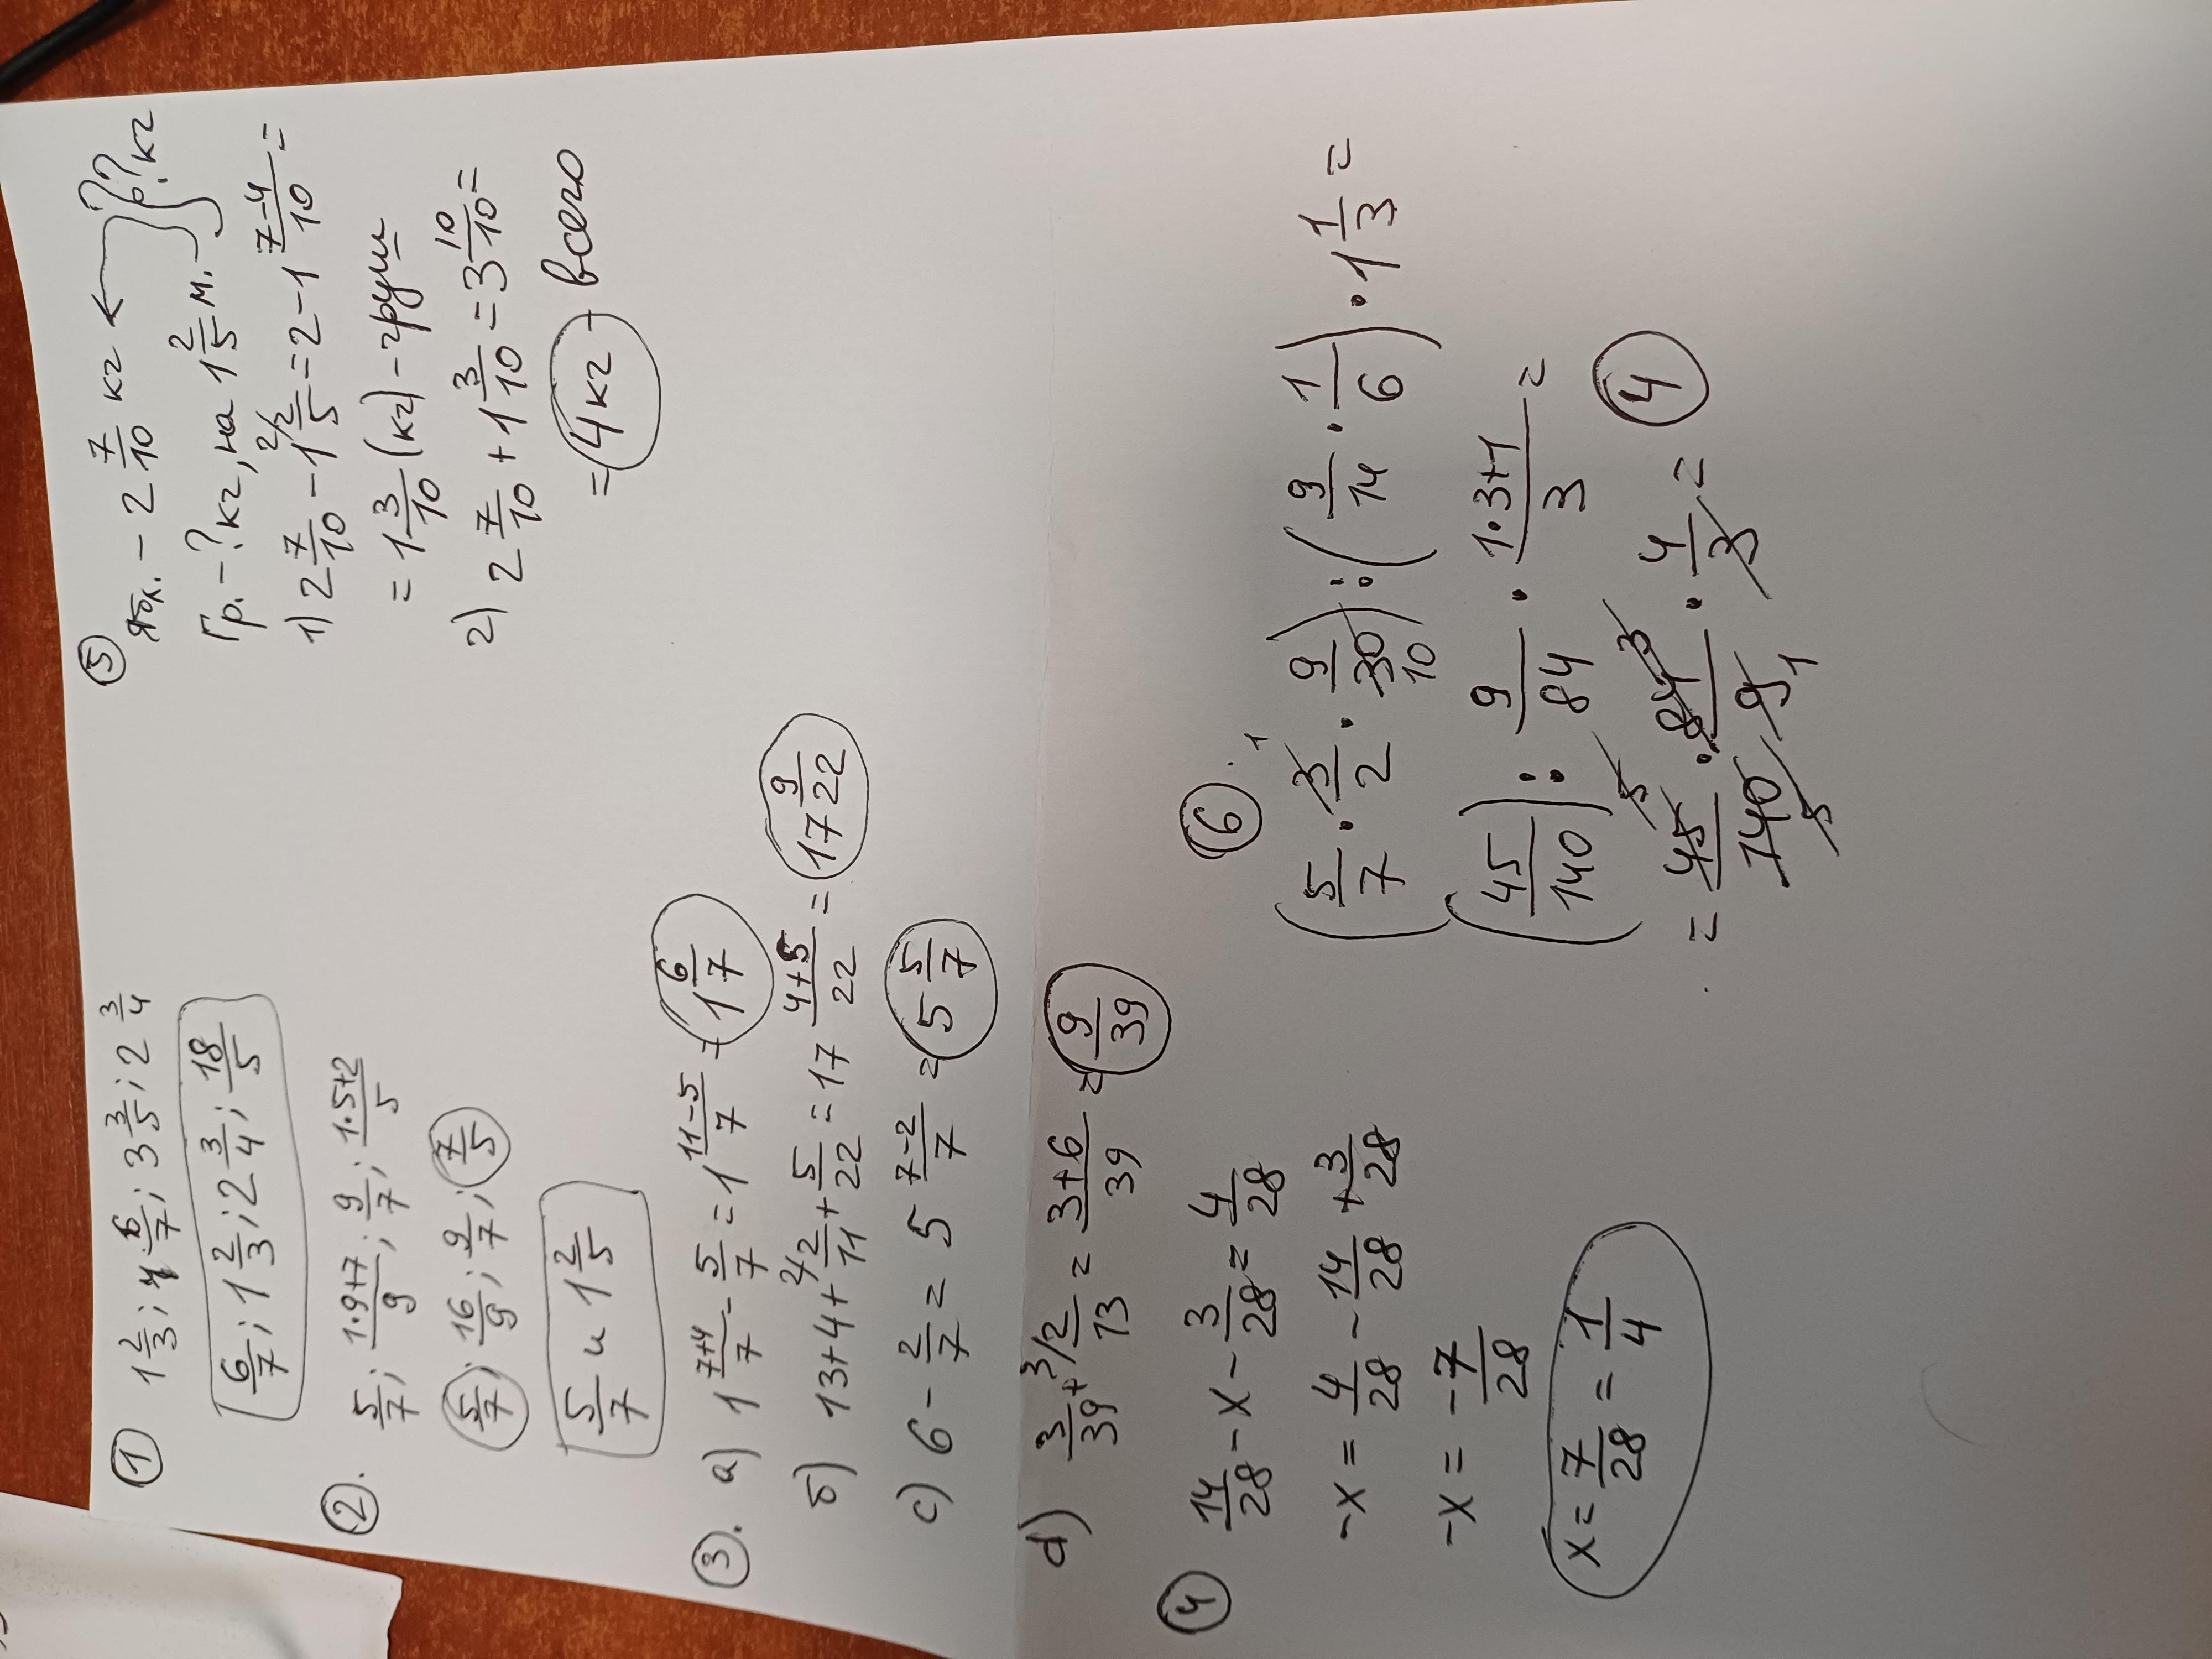 ① 1 2/3; 4 6/7; 3 3/5; 2 3/4
6/7; 1 2/3; 2 3/4; 18/5
②. 5/7; (1·9+7)/9; 9/7; (1·5+2)/5
5/7; 16/9; 9/7; 7/5
5/7 и 1 2/5
③. а) 1 (7+4)/7 - 5/7 = 1 (11-5)/7 = 1 6/7
б) 13+4+ 2/ 2/11 + 5/22 = 17 (4+5)/22 = 17 9/22
c) 6 - 2/7 = 5 (7-2)/7 = 5 5/7
d) 3/39 + 3/ 2/13 = (3+6)/39 = 9/39
④ 14/28 - x - 3/28 = 4/28
-x = 4/28 - 14/28 + 3/28
-x = - 7/28
x = 7/28 = 1/4
⑤
Ябл. - 2 7/10 кг
Гр. - ? кг, на 1 2/5 м. } ? кг
1) 2 7/10 - 1 2/ 2/5 = 2 - 1 (7-4)/10 =
= 1 3/10 (кг) - груш
2) 2 7/10 + 1 3/10 = 3 10/10 =
= 4 кг - всего
⑥
(5/7 · 3/2 · 9/30) : (9/14 · 1/6) · 1 1/3 =
1
10
(45/140) : 9/84 · (1·3+1)/3 =
= 45/140 · 84/9 · 4/3 = 4
5 3
5 1